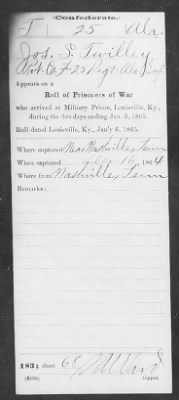 Confederate.
T 25 Ala.
Jos. S. Twilley
Pvt. Co F 25 Regt Ala Inf
Appears on a
Roll of Prisoners of War
who arrived at Military Prison, Louisville, Ky.,
during the five days ending Jan. 5, 1865.
Roll dated Louisville, Ky., Jan'y 6, 1865.
Where captured Near Nashville, Tenn
When captured Dec 16, 1864
Where from Nashville, Tenn
Remarks:
183; sheet 66
M Ward
(639b) Copyist.